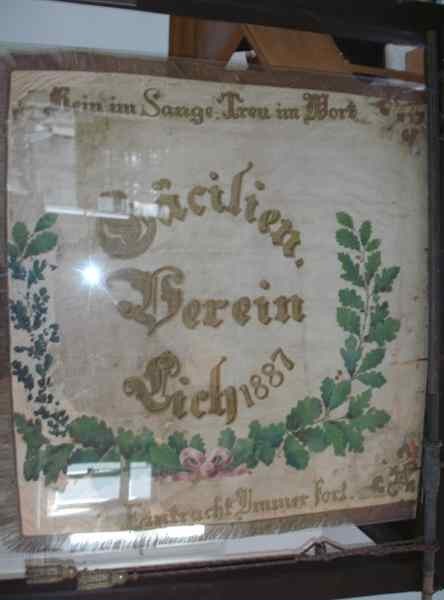 Rein im Sange, Treu im Wort
Cäcilien-
Verein
Lich 1887
Eintracht Immer fort